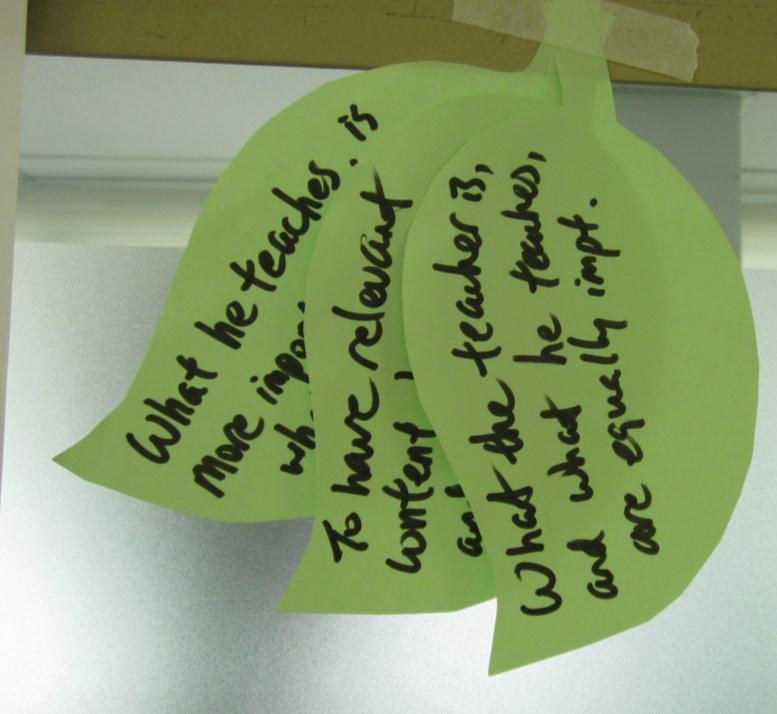 What he teaches. is
more
To have relevant
content
What the teacher is,
and what he teaches,
are equally impt.